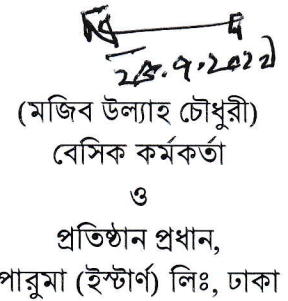 (মজিব উল্যাহ চৌধুরী)
বেসিক কর্মকর্তা
ও
প্রতিষ্ঠান প্রধান,
পারুমা (ইস্টার্ণ) লিঃ, ঢাকা